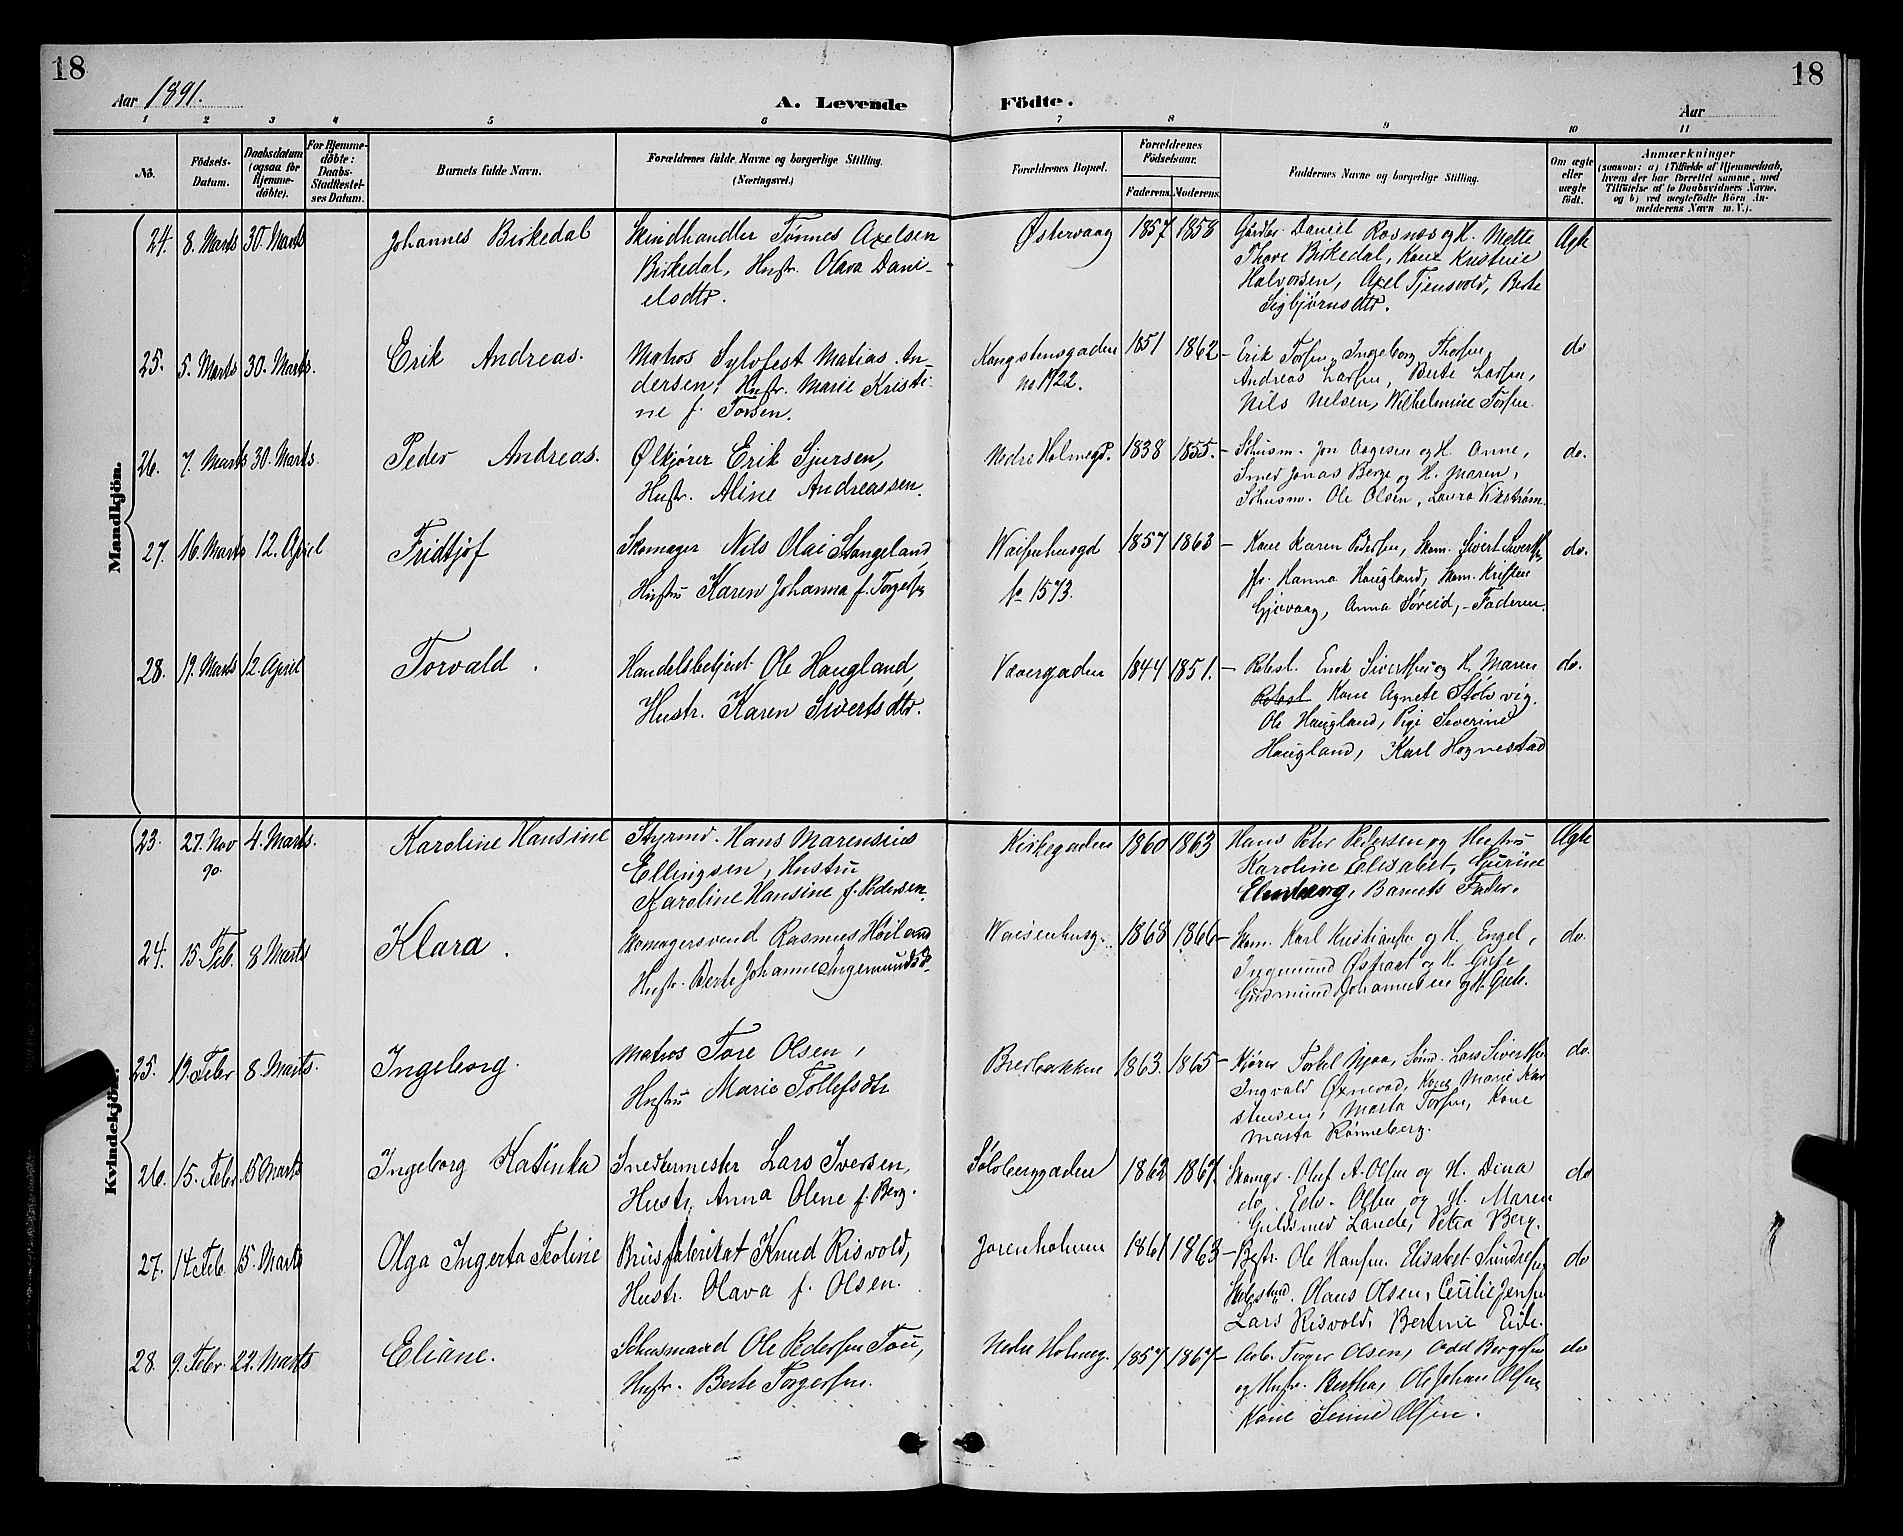 18
18
Aar 1891.
A. Levende
Födte.
Aar
1 2 3 4 5 6 7 8 9 10 11
No.
Födsels-
Datum.
Daabsdatum
(ogsaa for
Hjemme-
döbte).
For Hjemme-
döbte:
Daabs-
Stadfæstel-
ses Datum.
Barnets fulde Navn.
Forældrenes fulde Navne og borgerlige Stilling.
(Næringsvei.)
Forældrenes Bopæl.
Forældrenes
Födselsaar.
Faderens. Moderens.
Faddernes Navne og borgerlige Stilling.
Om ægte
eller
uægte
født.
Anmærkninger
(saasom: a) i Tilfælde af Hjemmedaab,
hvem der har forrettet samme, med
Tilföielse af to Daabsvidners Navne,
og b) ved uægtefödte Börn An-
melderens Navn m. V.).
Mandkjön.
24. 8. Marts 30. Marts Johannes Birkedal
Skindhandler Tønnes Axelsen
Birkedal, Hustr. Olava Dani-
elsdtr.
Østervaag 1857 1858
Gårdbr. Daniel Rosnos og H. Mette
Thore Birkedal, Kone Kristine
Halvorsen, Axel Tjensvold, Berte
Sigbjørnsdtr.
Ægte
25. 5. Marts 30. Marts. Erik Andreas.
Matros Sylvfest Matias An-
dersen, Hustr. Marie Kristi-
ne f. Torsen.
Kongstensgaden
no 1922.
1851 1862
Erik Torsen, Ingeborg Thorsen,
Andreas Larsen, Berte Larsen,
Nils Nelsen, Wilhelmine Torsen.
do
26. 7. Marts 30. Marts. Peder Andreas.
Ølkjører Erik Sjursen,
Hustr. Aline Andreassen.
Nedre Holmegd. 1838 1855.
Schusm. Jon Aagesen og H. Anne,
Smed Jonas Berge og H. Maren,
Schusm. Ole Olsen, Laura
do.
27. 16. Marts 12. April Fridtjof
Skomager Nils Olai Stangeland,
Hustru Karen Johanna f. Torgersen
Waisenhusgd
No 1573.
1857 1863
Kone Karen Pedersen, Skom. Sivert Sivertsen,
Fr. Hanna Haugland, Skom. Kristen
Gjervaag, Anna Søreid, - Faderen.
do.
28. 19. Marts 12. April Torvald.
Handelsbetjent Ole Haugland,
Hustr. Karen Sivertsdtr.
Vævergaden 1844 1851.
Enok Sivertsen og H. Maren
Kone Agnete Stolsvig,
Ole Haugland, Pige Severine
Haugland, Karl Hognestad
do.
Kvindekjön.
23. 27. Nov 90. 4. Marts. Karoline Hansine
Styrmd. Hans Marensius
Ellingsen, Hustru
Karoline Hansine f. Pedersen.
Kirkegaden 1860 1863
Hans Peter Pedersen og Hustru
Karoline Elisabet, Gurine
Barnets Fader.
Ægte
24. 15. Feb. 8 Marts Klara.
Skomagersvend Rasmus Høiland
Hustr. Berte Johanne Ingemundsd.
Waisenhusg. 1868 1866
Skom. Karl Kristiansen og H. Engel,
Ingemund Østraat og H. Grete
Gudmund Johannesen og H. Grete.
do.
25. 19. Febr 8. Marts. Ingeborg.
Matros Tore Olsen,
Hustru Marie Tollefsdtr
Bredbakken 1863. 1865
Kjører Torkel Njaa, Lars Sivertsen
Ingvald Øxnevad, Kone Marie Kar-
stensen, Marta Torsen, Kone
Marta Rønneberg.
do.
26. 15. Febr. 15 Marts Ingeborg Katinka
Snedkermester Lars Iversen,
Hustr. Anna Olene f. Berg.
Sølvberggaden 1862 1867.
Skomgr. Oluf A. Olsen og H. Dina
do. Edv. Olsen og H. Maren
Guldsmed Lande, Petra Berg.
do
27. 14. Feb. 15. Marts Olga Ingerta Teoline
Brusfabrikat Knud Risvold,
Hustr. Olava f. Olsen.
Jorenholmen 1861 1863
Bestr. Ole Hansen, Elisabet
Olaus Olsen, Cecilie Jensen
Lars Risvold, Bertine Eide.
do
28. 9. Febr. 22. Marts Eliane.
Schusmand Ole Pedersen Tou,
Hustr. Berte Torgersen.
Nedre Holmeg. 1857 1867
Arb. Torger Olsen, Odd
og Hustr. Bertha, Ole Johan Olsen,
Kone Olsen.
do